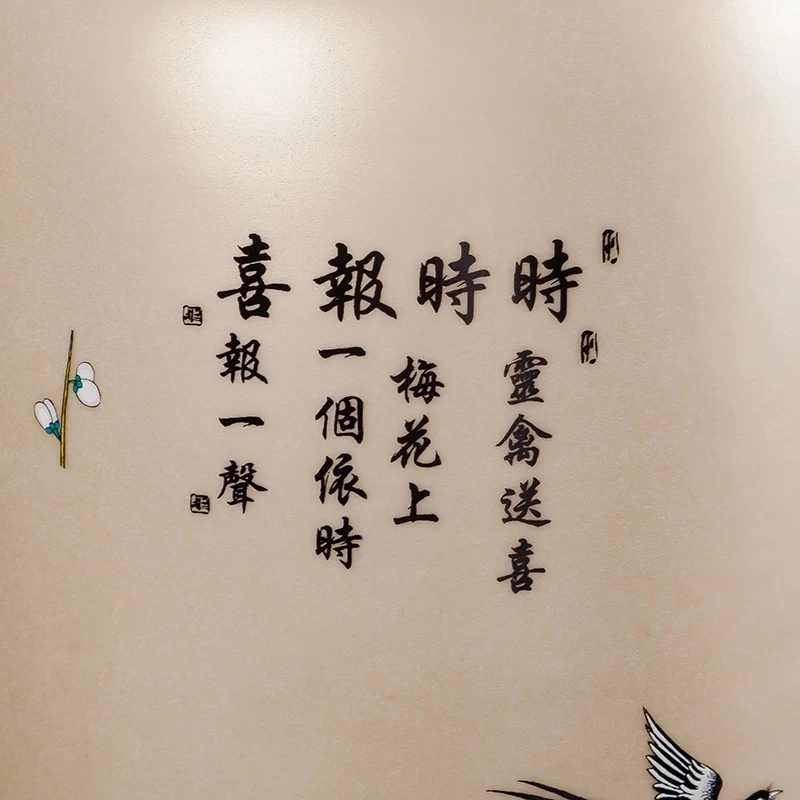 時時報喜
靈禽送喜
梅花上
一個依時
報一聲